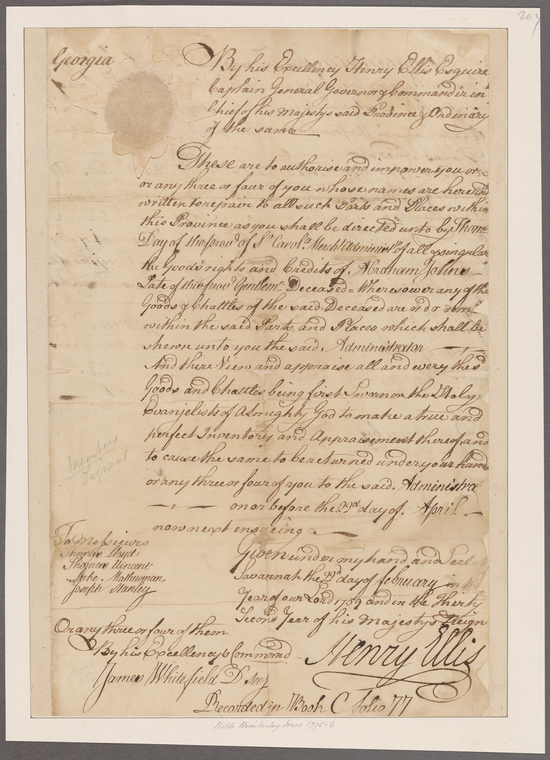 Georgia
By his Excellency Henry Ellis Esquire
Captain General Governor & Commander in
Chief of his Majestys said Province & Ordinary
of the same
These are to authorise and impower you or
or any three or four of you whose names are here
written to repair to all such Parts and Places within
this Province as you shall be directed unto by Thomas
Day of the prov: of So. Carola. Mercht. Administr. of all & singular
the Goods rights and Credits of Abraham Johns
Late of this prov: Gentlemn. Deceased = Wheresoever any of the
Goods & Chattles of the said Deceased are or do
within the said Parts and Places which shall be
shewn unto you the said Administrator
And there View and appraise all and every the sd.
Goods and Chattles being first Sworn on the Holy
Evangelists of Almighty God to make a true and
perfect Inventory and Appraisement thereof and
to cause the same to be returned under your hand
or any three or four of you to the said Administra
on or before the 2d. day of April
now next ensueing
To Messieurs
Thomas Lloyd
Thomas Vincent
Luke
Joseph Stanley
Given under my hand and Seal at
Savannah the 2d day of February in the
Year of our Lord 1759 and in the Thirty
Second Year of his Majestys Reign
Or any three or four of them
By his Excellencys Command
Henry Ellis
James Whitefield D Secy
Recorded in Book C Folio 77